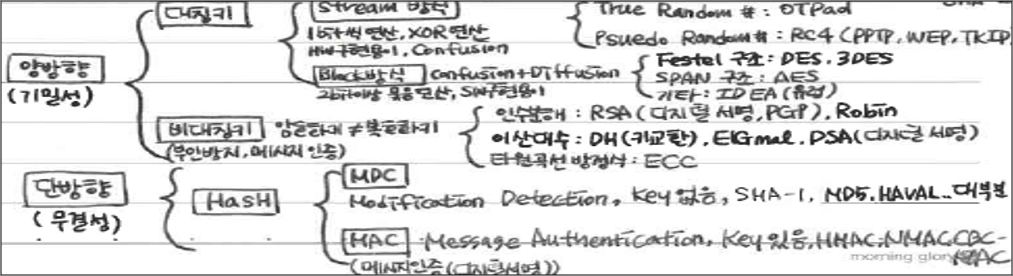 대칭키
Stream 방식
1bit씩 연산, XOR 연산
HW구현용이, Confusion
True Random # : OTPad
Psuedo Random # : RC4 (PPTP, WEP, TKIP)
양방향
(기밀성)
Block방식 Confusion+Diffusion
2bit이상 묶음연산, SW구현용이
Festel 구조 : DES, 3DES
SPAN 구조 : AES
기타 : IDEA (유럽)
비대칭키 암호화키 ≠ 복호화키
(부인방지, 메시지 인증)
인수분해 : RSA (디지털 서명, PGP), Robin
이산대수 : DH (키교환), ElGmal, DSA (디지털 서명)
타원곡선 방정식 : ECC
단방향
(무결성)
HasH
MDC
Modification Detection, Key 없음, SHA-1, MD5, HAVAL.. 대부분
MAC Message Authentication, Key 있음, HMAC, NMAC, CBC-
MAC
(메시지인증(디지털서명))
morning glory